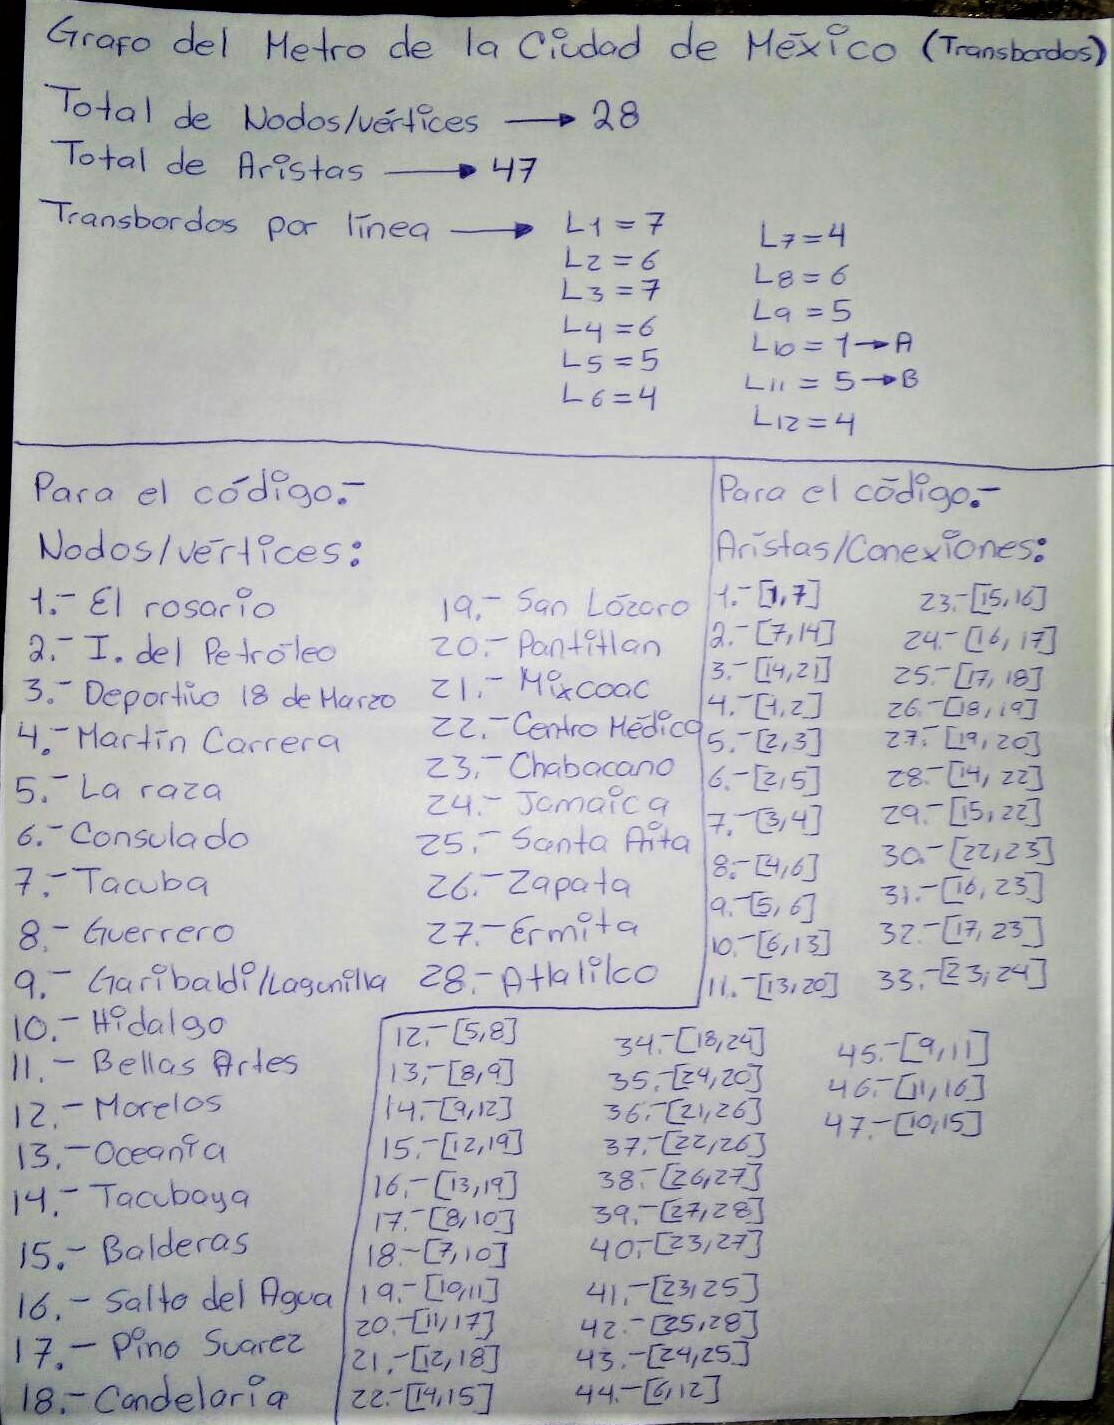 Grafo del Metro de la Ciudad de México (Transbordos)
Total de Nodos/vértices → 28
Total de Aristas → 47
Transbordos por línea →
L1 = 7
L2 = 6
L3 = 7
L4 = 6
L5 = 5
L6 = 4
L7 = 4
L8 = 6
L9 = 5
L10 = 1 → A
L11 = 5 → B
L12 = 4
Para el código.-
Nodos/vértices:
1.- El rosario
2.- I. del Petróleo
3.- Deportivo 18 de Marzo
4.- Martín Carrera
5.- La raza
6.- Consulado
7.- Tacuba
8.- Guerrero
9.- Garibaldi/Lagunilla
10.- Hidalgo
11.- Bellas Artes
12.- Morelos
13.- Oceanía
14.- Tacubaya
15.- Balderas
16.- Salto del Agua
17.- Pino Suarez
18.- Candelaria
19.- San Lázaro
20.- Pantitlan
21.- Mixcoac
22.- Centro Médico
23.- Chabacano
24.- Jamaica
25.- Santa Anita
26.- Zapata
27.- Ermita
28.- Atlalilco
Para el código.-
Aristas/Conexiones:
1.- [1,7]
2.- [7,14]
3.- [14,21]
4.- [1,2]
5.- [2,3]
6.- [2,5]
7.- [3,4]
8.- [4,6]
9.- [5,6]
10.- [6,13]
11.- [13,20]
12.- [5,8]
13.- [8,9]
14.- [9,12]
15.- [12,19]
16.- [13,19]
17.- [8,10]
18.- [7,10]
19.- [10,11]
20.- [11,17]
21.- [12,18]
22.- [14,15]
23.- [15,16]
24.- [16,17]
25.- [17,18]
26.- [18,19]
27.- [19,20]
28.- [14,22]
29.- [15,22]
30.- [22,23]
31.- [16,23]
32.- [17,23]
33.- [23,24]
34.- [18,24]
35.- [24,20]
36.- [21,26]
37.- [22,26]
38.- [26,27]
39.- [27,28]
40.- [23,27]
41.- [23,25]
42.- [25,28]
43.- [24,25]
44.- [6,12]
45.- [9,11]
46.- [11,16]
47.- [10,15]